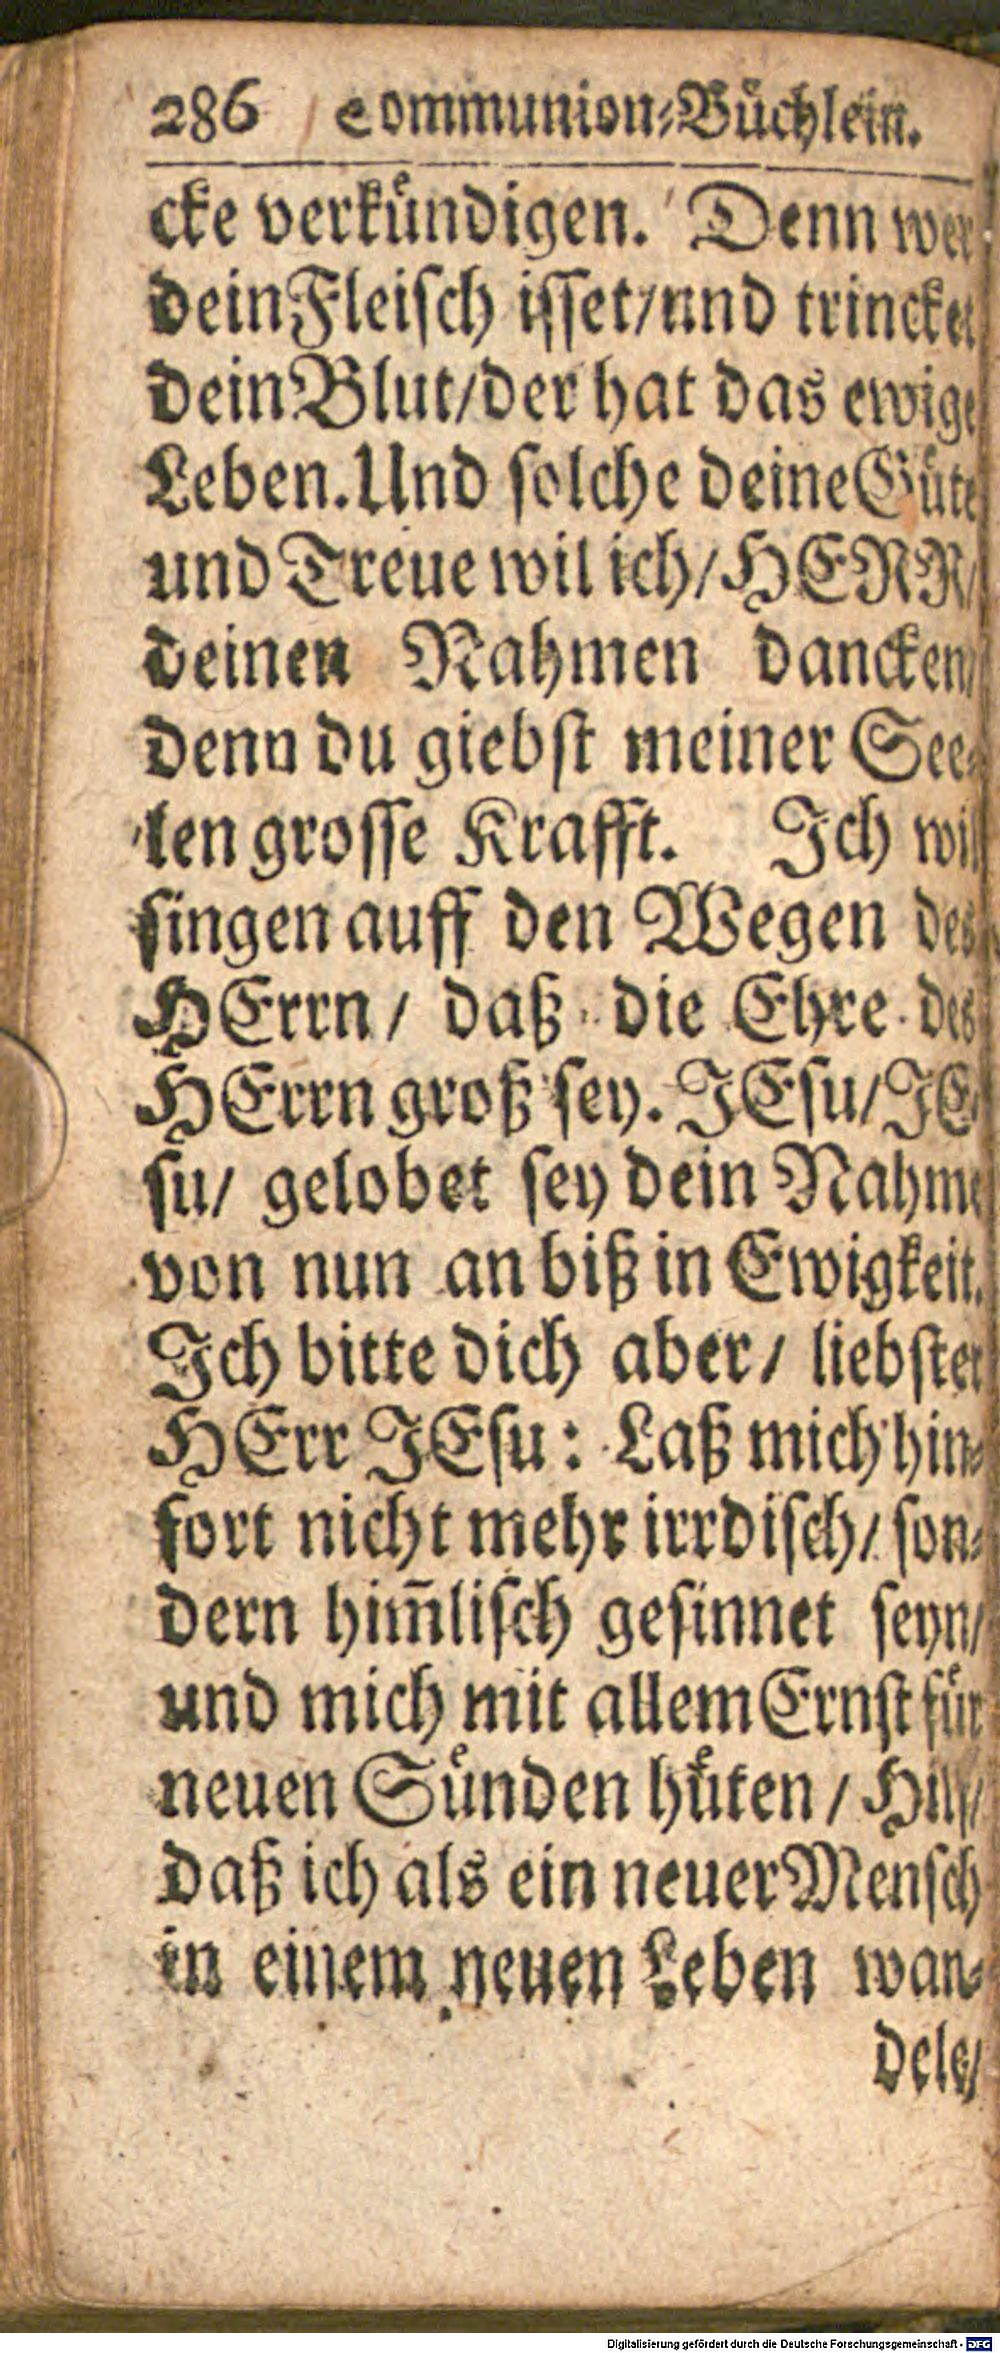 286 Communion-Büchlein.
cke verkündigen. Denn wer
dein Fleisch isset/und trincket
dein Blut/der hat das ewige
Leben. Und solche deine Güte
und Treue wil ich/HERR/
deinen Nahmen dancken/
denn du giebst meiner See-
len grosse Krafft. Ich wil
singen auff den Wegen des
HErrn/ daß die Ehre des
HErrn groß sey. JEsu/JE-
su/ gelobet sey dein Nahme
von nun an biß in Ewigkeit.
Ich bitte dich aber/ liebster
HErr JEsu: Laß mich hin-
fort nicht mehr irrdisch/ son-
dern him̃lisch gesinnet seyn/
und mich mit allem Ernst für
neuen Sünden hüten / Hilf/
daß ich als ein neuer Mensch
in einem neuen Leben wan-
dele/
Digitalisierung gefördert durch die Deutsche Forschungsgemeinschaft - DFG